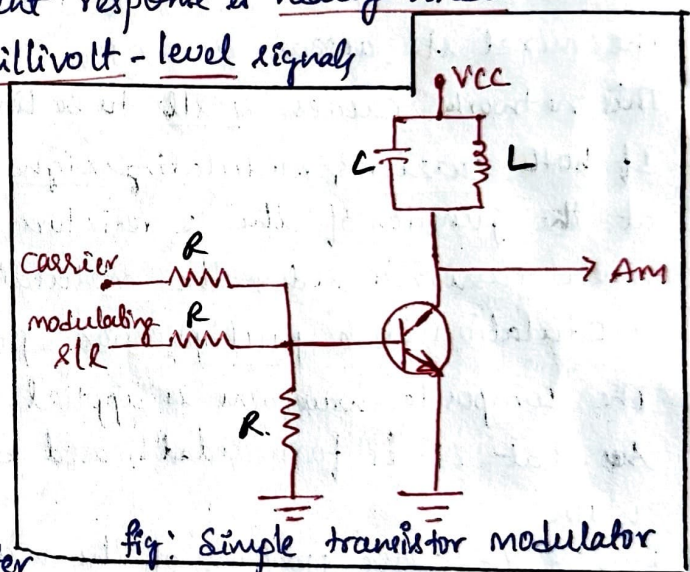 response is nearly
illivolt - level signals
VCC
C
L
carrier
R
Am
modulating
R
R.
fig: Simple transistor modulator